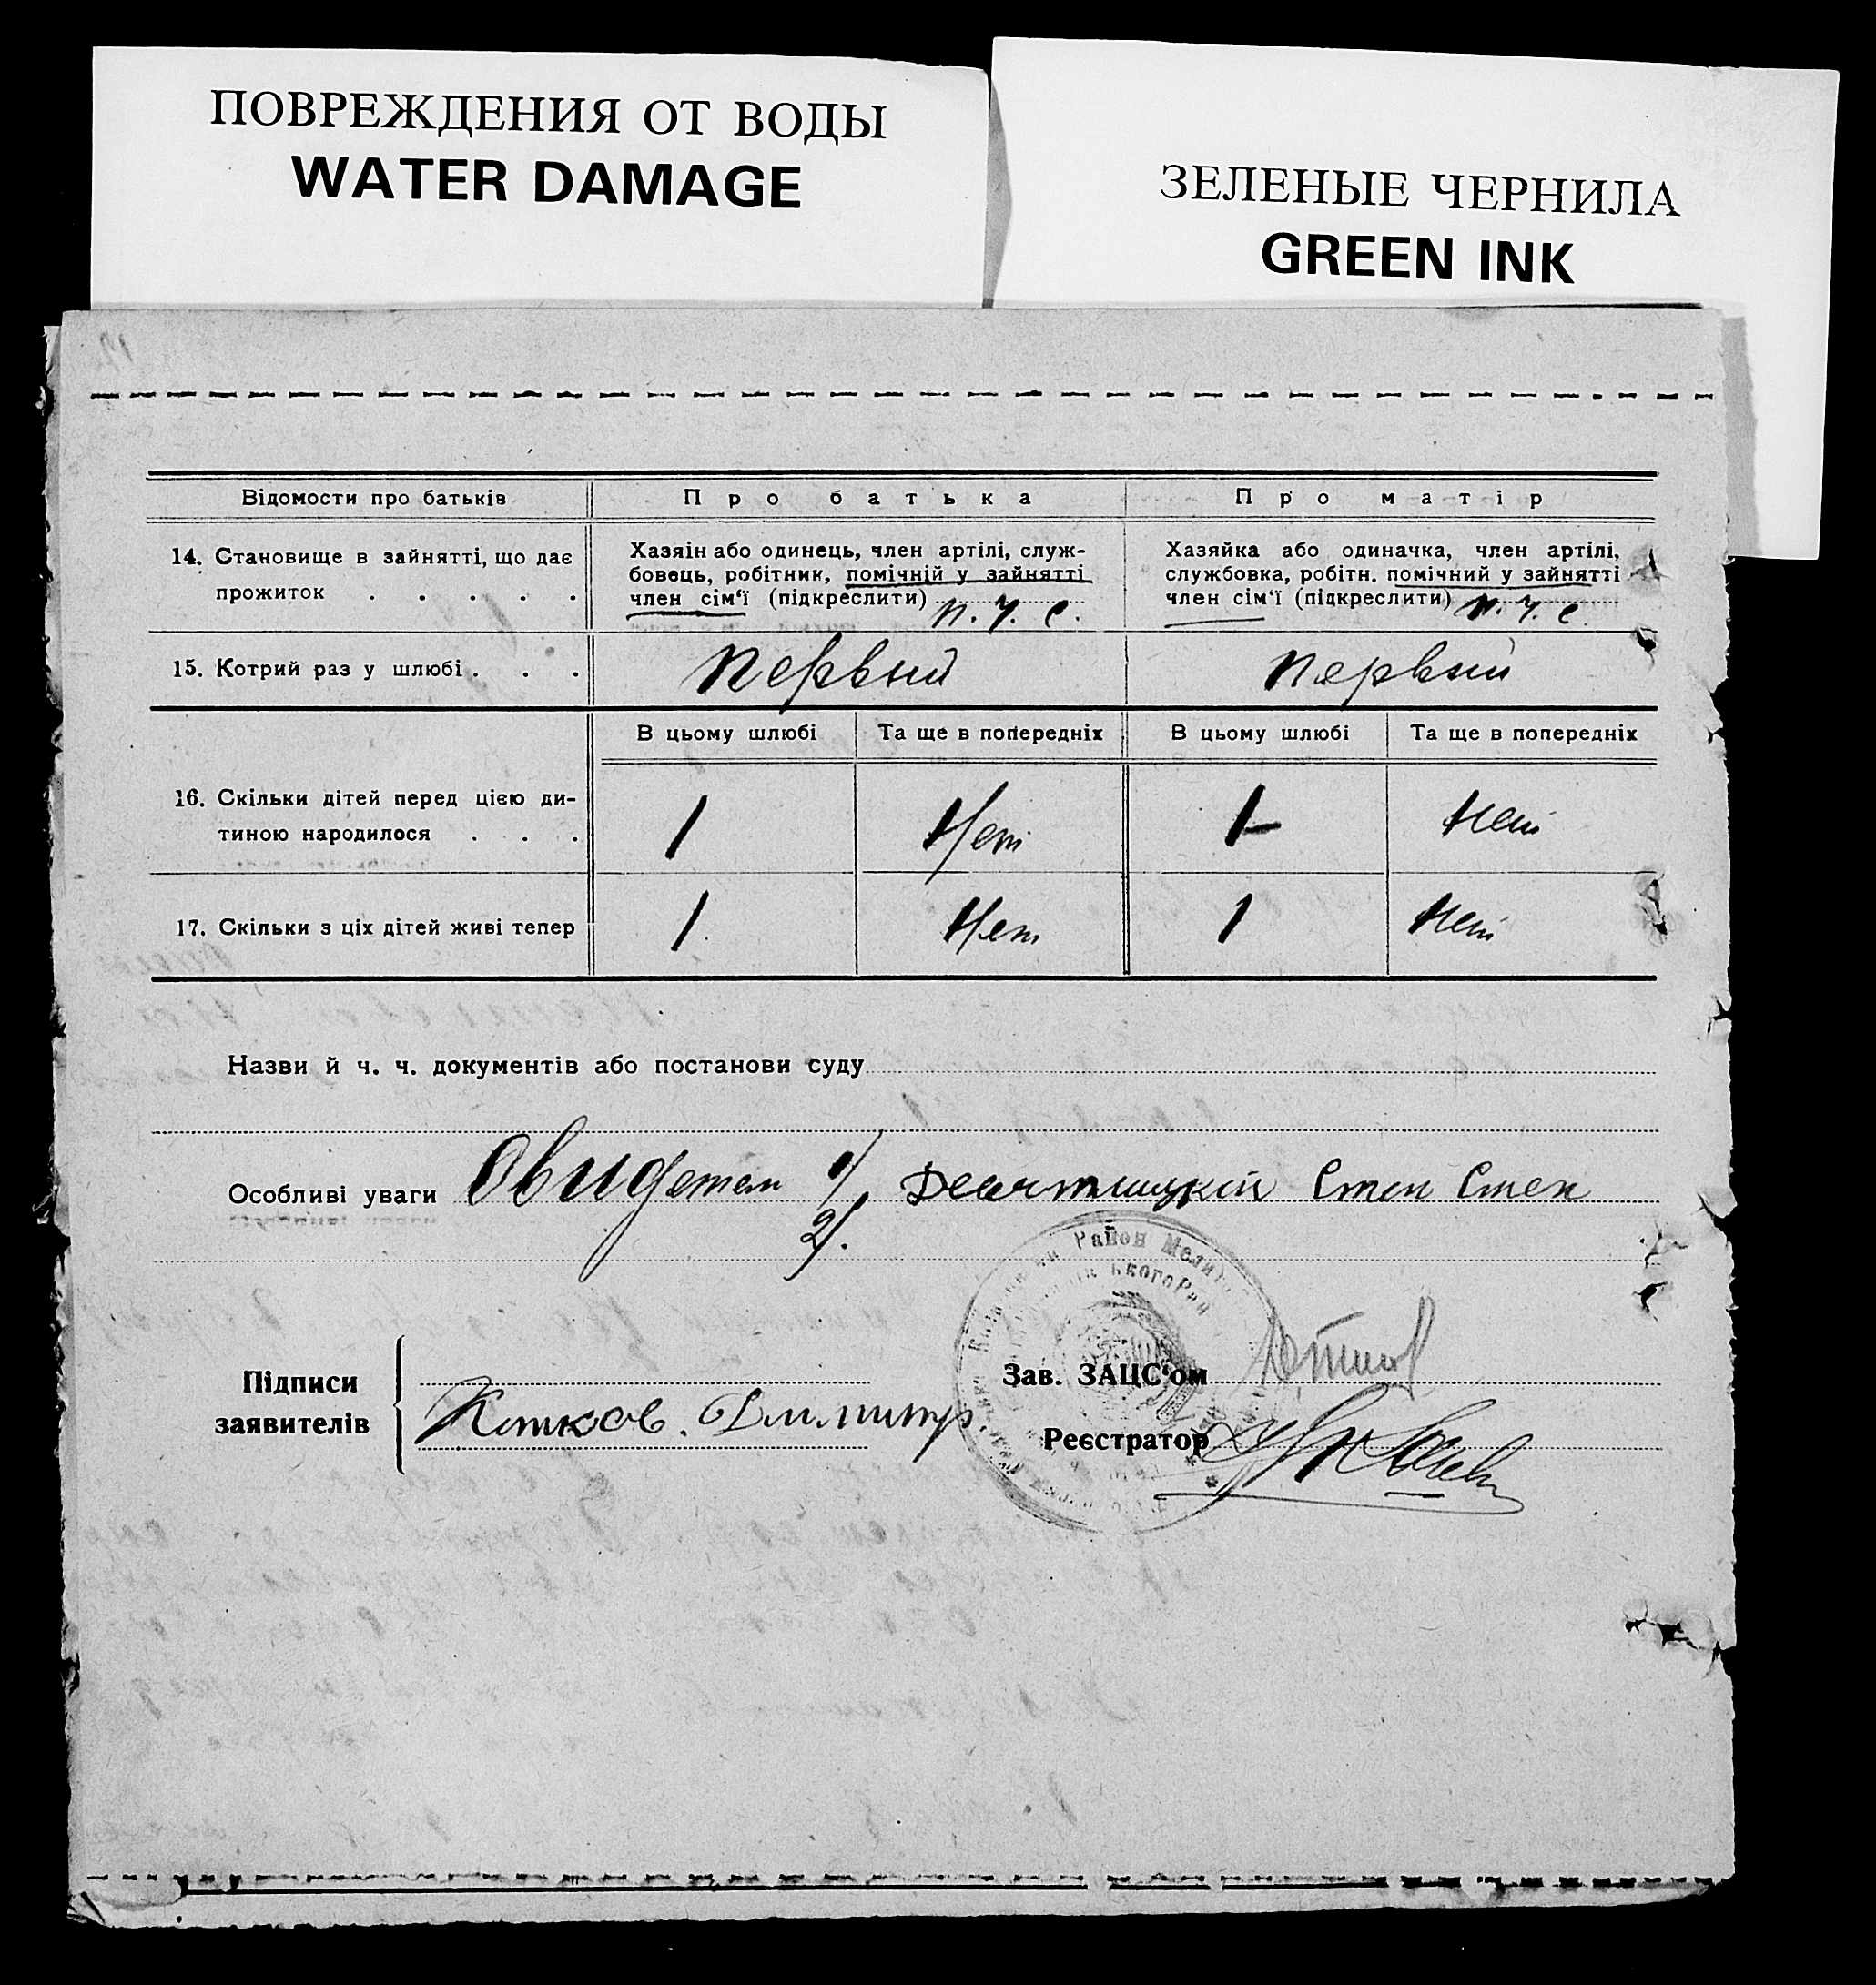 ПОВРЕЖДЕНИЯ ОТ ВОДЫ
WATER DAMAGE
ЗЕЛЕНЫЕ ЧЕРНИЛА
GREEN INK
Відомости про батьків
Про батька
Про матір
14. Становище в зайнятті, що дає
прожиток . . . . .
Хазяін або одинець, член артілі, служ-
бовець, робітник, помічній у зайнятті
член сім‘ї (підкреслити) п. у. с.
Хазяйка або одиначка, член артілі,
службовка, робітн. помічний у зайнятті
член сім‘ї (підкреслити) п. у. с.
15. Котрий раз у шлюбі . . .
Первый
Первый
В цьому шлюбі
Та ще в попередніх
В цьому шлюбі
Та ще в попередніх
16. Скільки дітей перед цією ди-
тиною народилося . . .
1
Нет
1
Нет
17. Скільки з ціх дітей живі тепер
1
Нет
1
Нет
Назви й ч. ч. документів або постанови суду
Особливі уваги 1/ Степ Степ
2/.
Район
Підписи
заявителів
Котков. Димитр.
Зав. ЗАЦС‘ом
Реєстратор